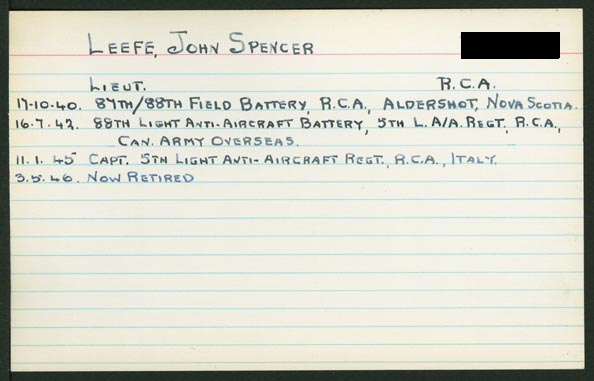 LEEFE, JOHN SPENCER
LIEUT. R.C.A.
17-10-40. 87TH/88TH FIELD BATTERY, R.C.A., ALDERSHOT, NOVA SCOTIA.
16.7.42. 88TH LIGHT ANTI-AIRCRAFT BATTERY, 5TH L.A/A. REGT, R.C.A.,
CAN. ARMY OVERSEAS.
11.1.45 CAPT. 5TH LIGHT ANTI-AIRCRAFT REGT., R.C.A., ITALY.
3.5.46. NOW RETIRED